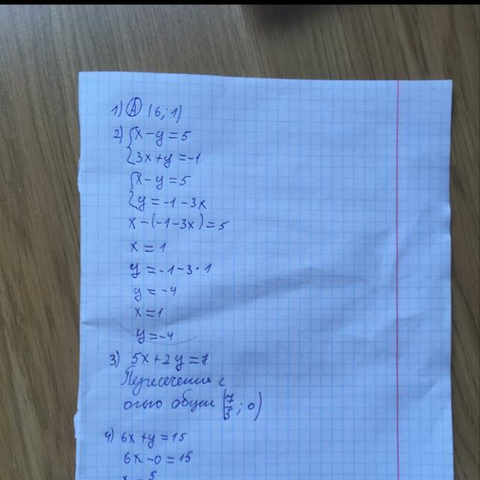 1) А (6; 1)
2) {x-y=5
{3x+y=-1
{x-y=5
{y=-1-3x
x-(-1-3x)=5
x=1
y=-1-3·1
y=-4
x=1
y=-4
3) 5x+2y=7
Пересечения с
осью обуси (7/5; 0)
4) 6x+y=15
6x-0=15